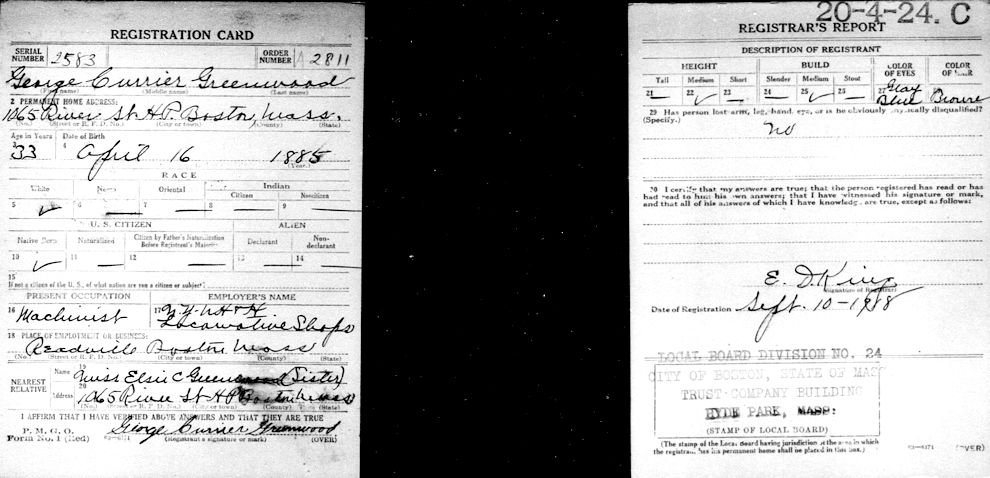 REGISTRATION CARD
SERIAL NUMBER 2583 ORDER NUMBER A2811
George Currier Greenwood
(First name) (Middle name) (Last name)
2 PERMANENT HOME ADDRESS:
1065 River St H.P. Boston, Mass.
(No.) (Street or R. F. D. No.) (City or town) (County) (State)
Age in Years Date of Birth
3 33 4 April 16 1885
(Year.)
RACE
White Negro Oriental Indian
Citizen Noncitizen
5 ✓ 6 7 8 9
U. S. CITIZEN ALIEN
Native Born Naturalized Citizen by Father's Naturalization Before Registrant's Majority Declarant Non-declarant
10 ✓ 11 12 13 14
15
If not a citizen of the U. S., of what nation are you a citizen or subject?
PRESENT OCCUPATION EMPLOYER'S NAME
16 Machinist 17 N.Y. N.H & H
Locomotive Shops
18 PLACE OF EMPLOYMENT OR BUSINESS:
Readville Boston Mass
(No.) (Street or R. F. D. No.) (City or town) (County) (State)
NEAREST RELATIVE Name 19 Miss Elsie C Greenwood (Sister)
Address 20 1065 River St H P Boston Mass
(No.) (Street or R. F. D. No.) (City or town) (County) (State)
I AFFIRM THAT I HAVE VERIFIED ABOVE ANSWERS AND THAT THEY ARE TRUE
P. M. G. O.
Form No. 1 (Red) 03-6171 George Currier Greenwood
(Registrant's signature or mark) (OVER)
20-4-24. C
REGISTRAR'S REPORT
DESCRIPTION OF REGISTRANT
HEIGHT BUILD COLOR OF EYES COLOR OF HAIR
Tall Medium Short Slender Medium Stout
21 22 ✓ 23 24 25 ✓ 26 27 Gray Blue Brown
29 Has person lost arm, leg, hand, eye, or is he obviously physically disqualified?
(Specify.) no
30 I certify that my answers are true; that the person registered has read or has
had read to him his own answers; that I have witnessed his signature or mark,
and that all of his answers of which I have knowledge are true, except as follows:
E. D. King
(Signature of Registrar)
Date of Registration Sept. 10-1918
LOCAL BOARD DIVISION NO. 24
CITY OF BOSTON, STATE OF MASS
TRUST COMPANY BUILDING
HYDE PARK, MASS.
(STAMP OF LOCAL BOARD)
(The stamp of the Local Board having jurisdiction of the area in which
the registrant has his permanent home shall be placed in this box.)
03-6171 (OVER)